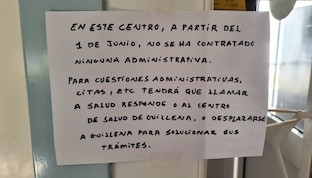 EN ESTE CENTRO, A PARTIR DEL
1 DE JUNIO, NO SE HA CONTRATADO
NINGUNA ADMINISTRATIVA.
PARA CUESTIONES ADMINISTRATIVAS,
CITAS, ETC TENDRÁ QUE LLAMAR
A SALUD RESPONDE O AL CENTRO
DE SALUD DE GUILLENA, O DESPLAZARSE
A GUILLENA PARA SOLUCIONAR SUS
TRÁMITES.